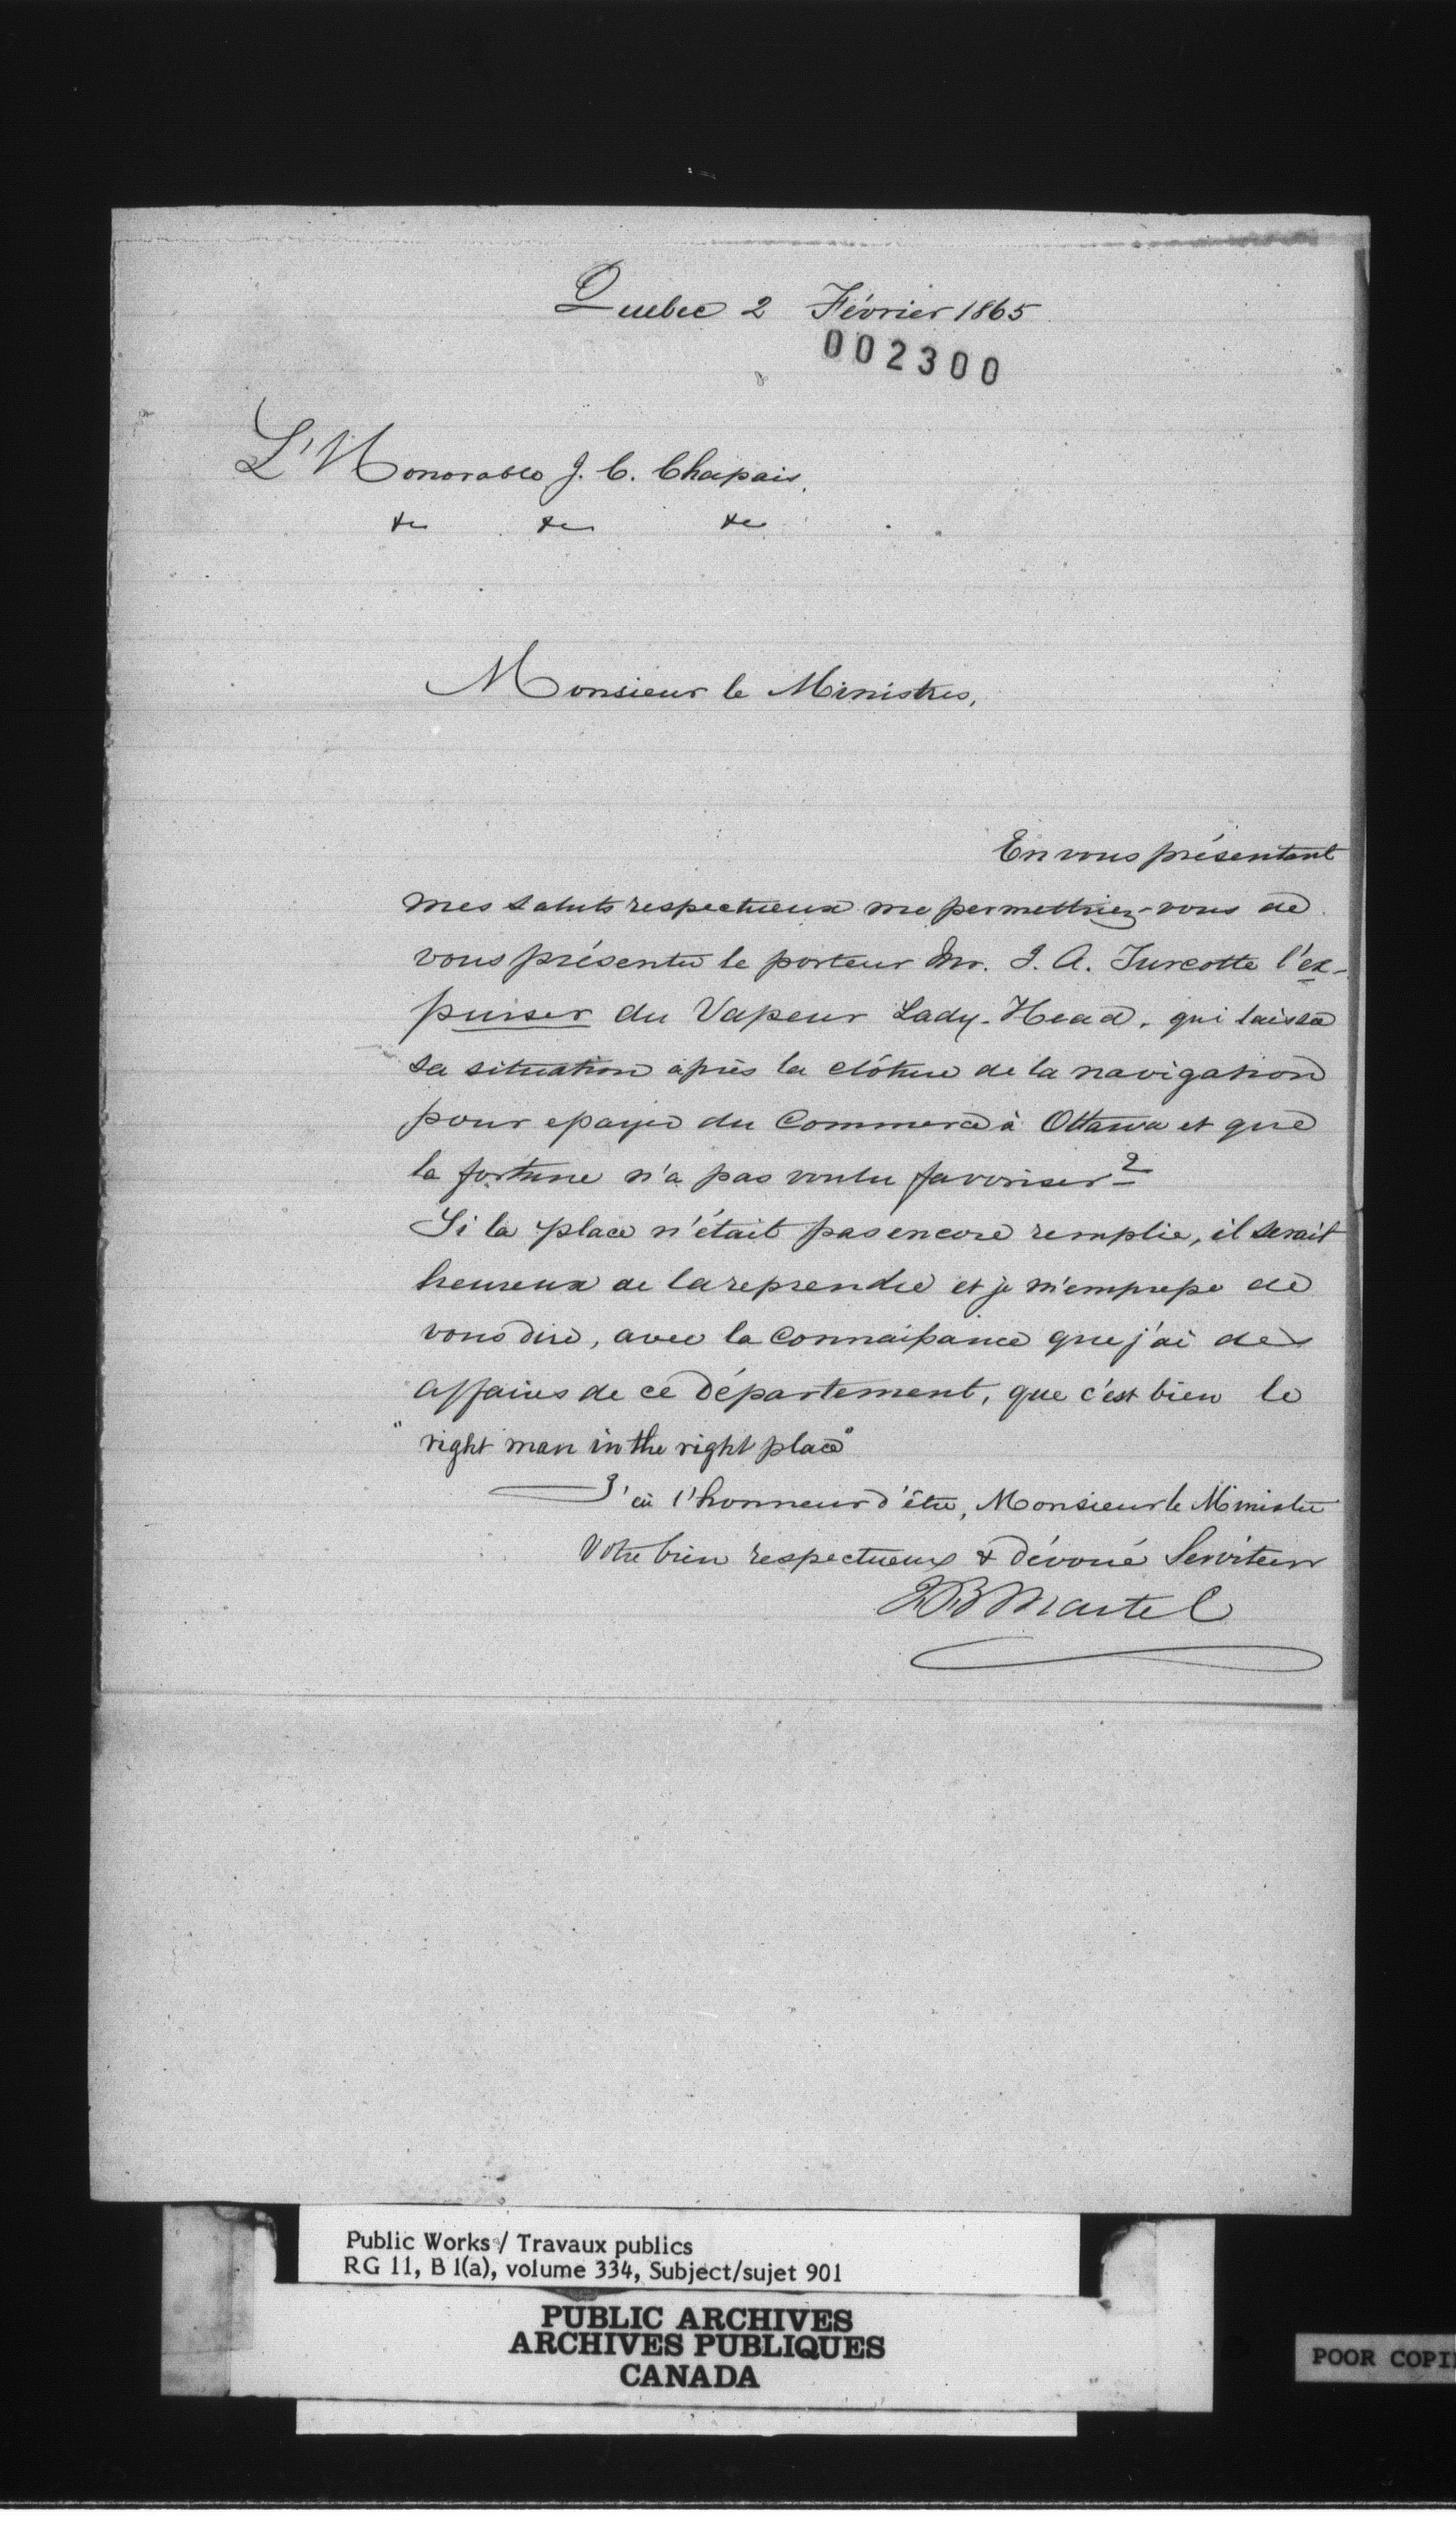 Quebec 2 Février 1865
002300
L'Honorable J. C. Chapais,
&c &c &c
Monsieur le Ministre,
En vous présentant
mes saluts respectueux me permettriez-vous de
vous présenter le porteur Mr. J. A. Turcotte l'ex-
purser du Vapeur Lady-Head, qui laissa
sa situation après la clôture de la navigation
pour essayer du Commerce à Ottawa et que
la fortune n'a pas voulu favoriser?
Si la place n'était pas encore remplie, il serait
heureux de la reprendre et je m'empresse de
vous dire, avec la Connaissance que j'ai des
affaires de ce Département, que c'est bien le
"right man in the right place"
J'ai l'honneur d'être, Monsieur le Ministre
Votre bien respectueux & dévoué Serviteur
Martel
Public Works / Travaux publics
RG 11, B 1(a), volume 334, Subject/sujet 901
PUBLIC ARCHIVES
ARCHIVES PUBLIQUES
CANADA
POOR COPI